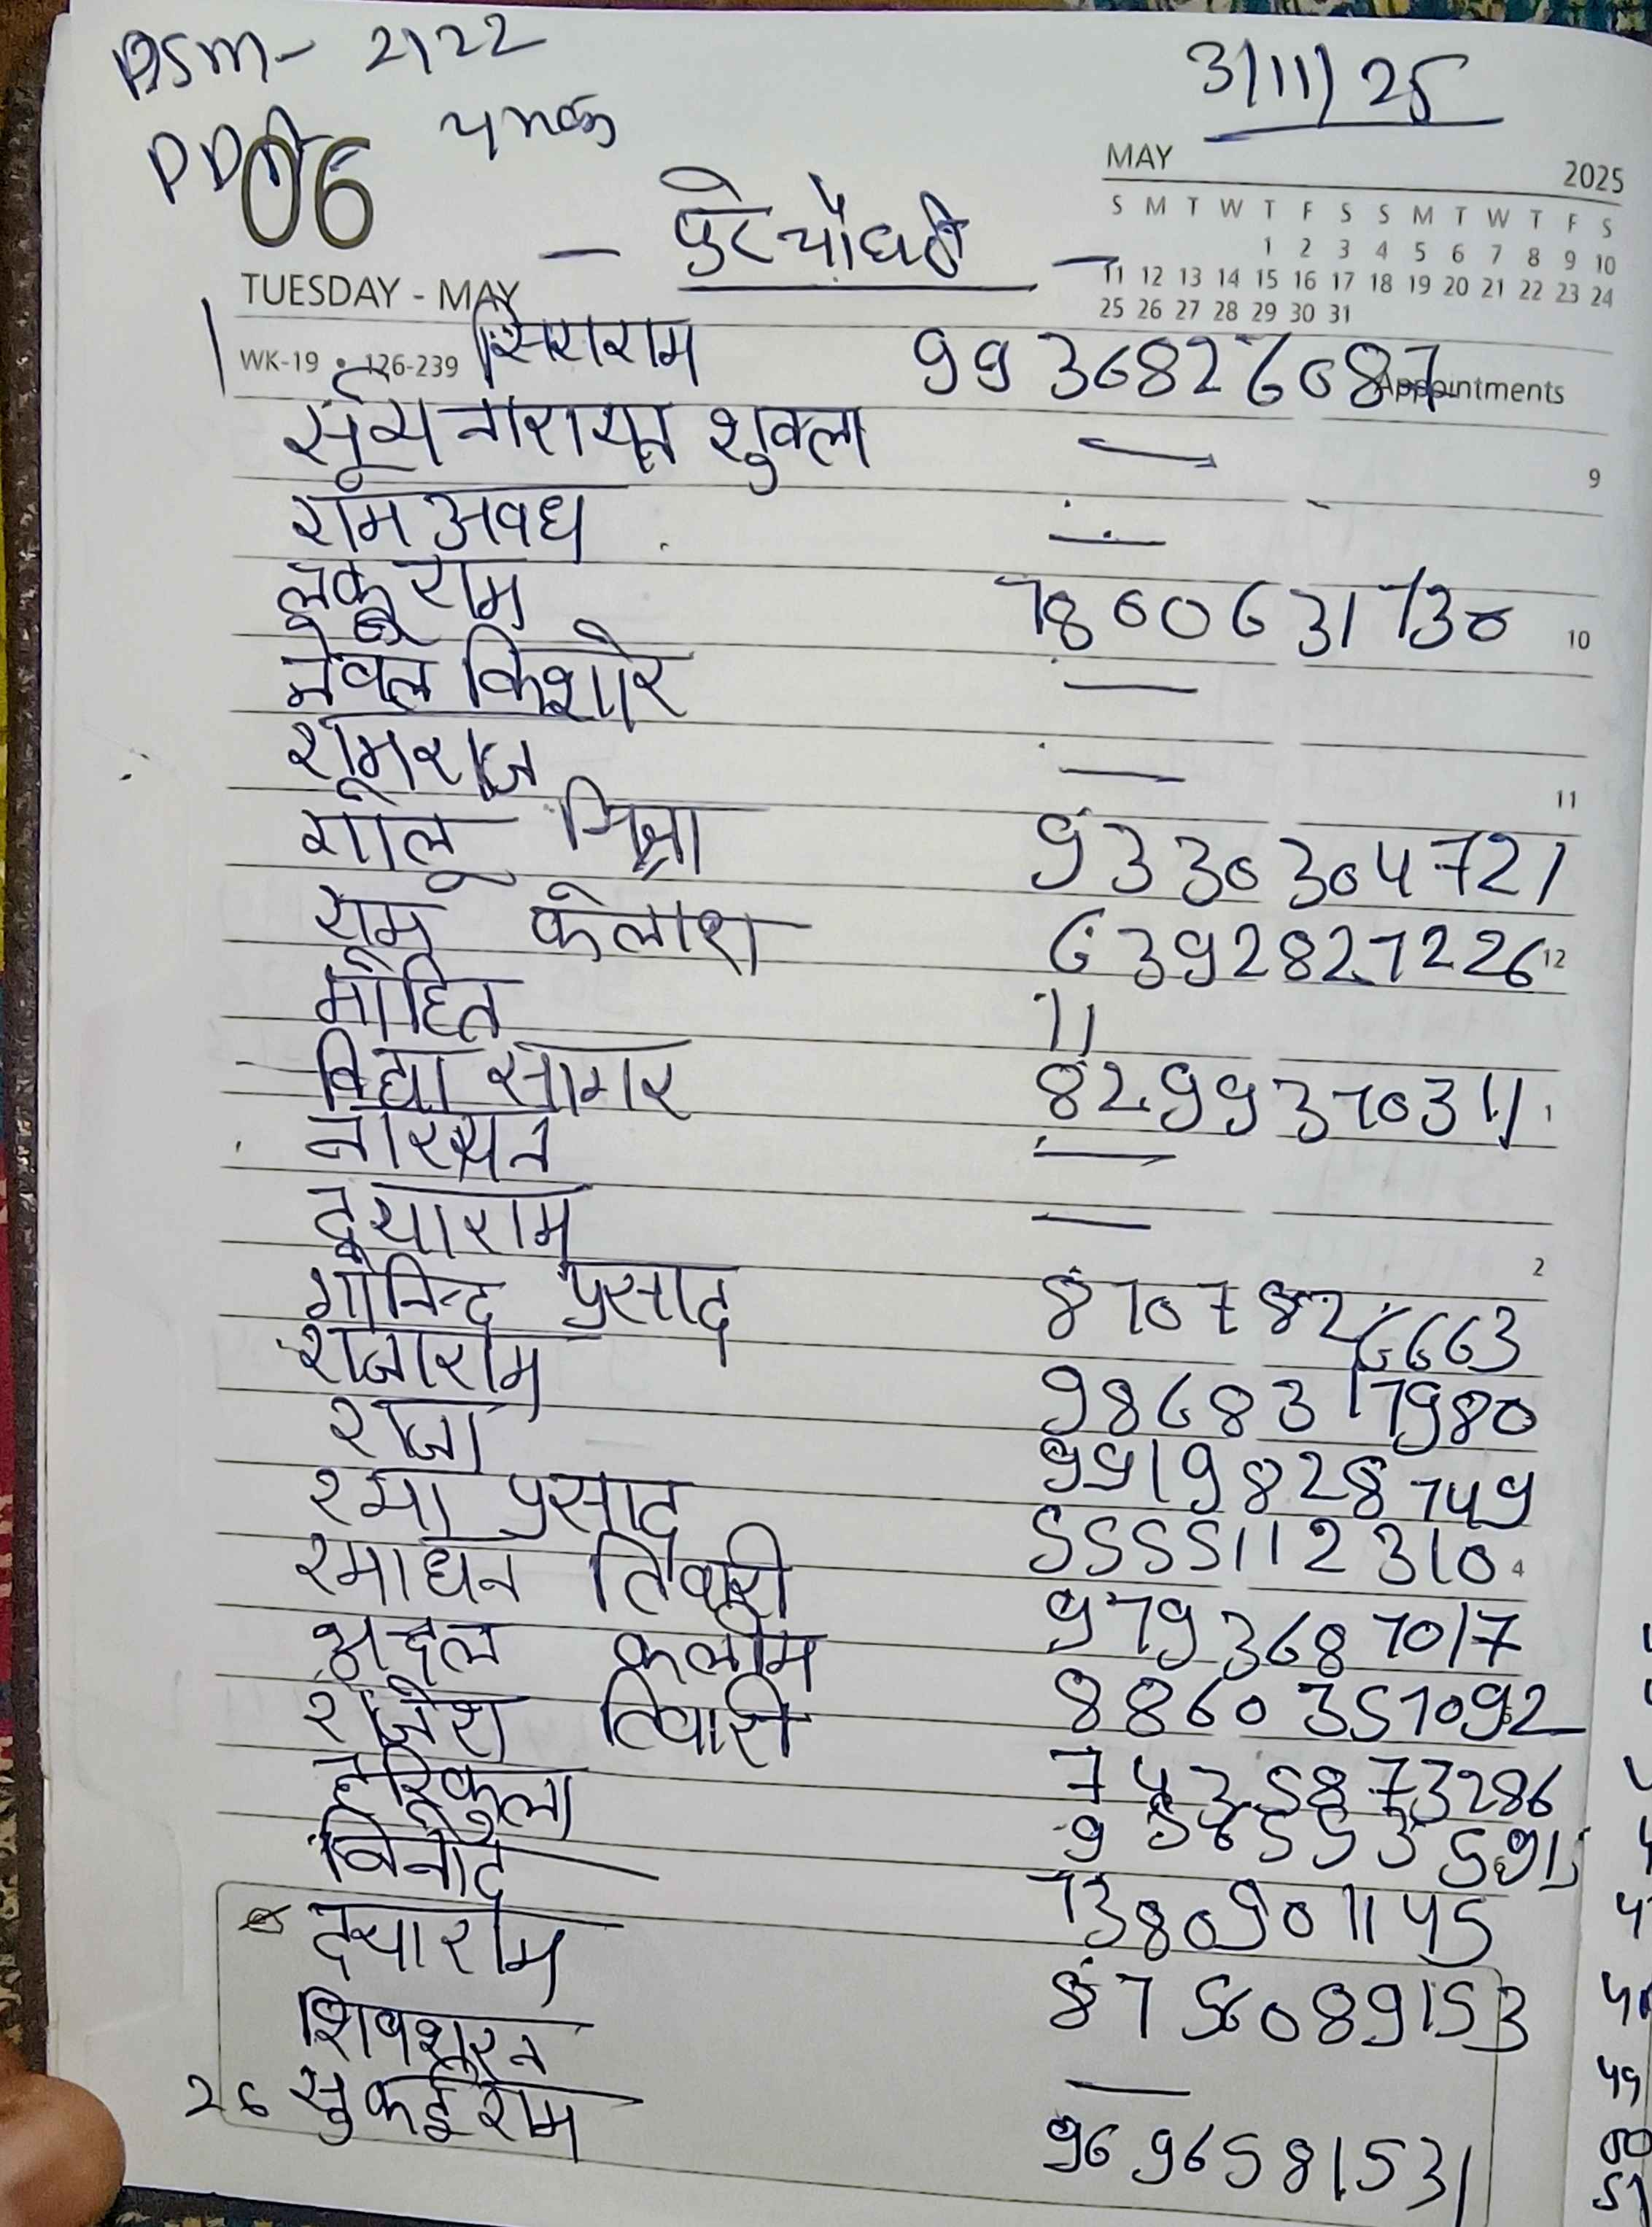 DSM- 2122
3/11/25
06
MAY 2025
S M T W T F S S M T W T F S
1 2 3 4 5 6 7 8 9 10
11 12 13 14 15 16 17 18 19 20 21 22 23 24
25 26 27 28 29 30 31
TUESDAY - MAY
WK-19 • 126-239
Appointments
1 सियाराम 99368276087
सूर्य नारायन शुक्ला —
9
राम अवध —
राम 7860631730
10
नवल किशोर —
रामराज —
11
गोलू मिश्रा 9330304721
राम कैलाश 6392827226
12
मोहित 11
विद्या सागर 8299370311
1
नारायन —
दयाराम —
2
गोविन्द प्रसाद 8707826663
राजाराम 9868317980
राजा 9919828749
रमा प्रसाद 5555112310
4
रमाधन तिवारी 9793687017
अब्दुल कलाम 8860357092
राजेश तिवारी
हरिकुला
विनोद 7380901145
दयाराम 8756089153
शिवशरन —
26 सुकई राम 9696581531